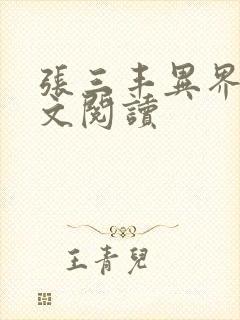 張三丰異界
文閱讀
王青兒